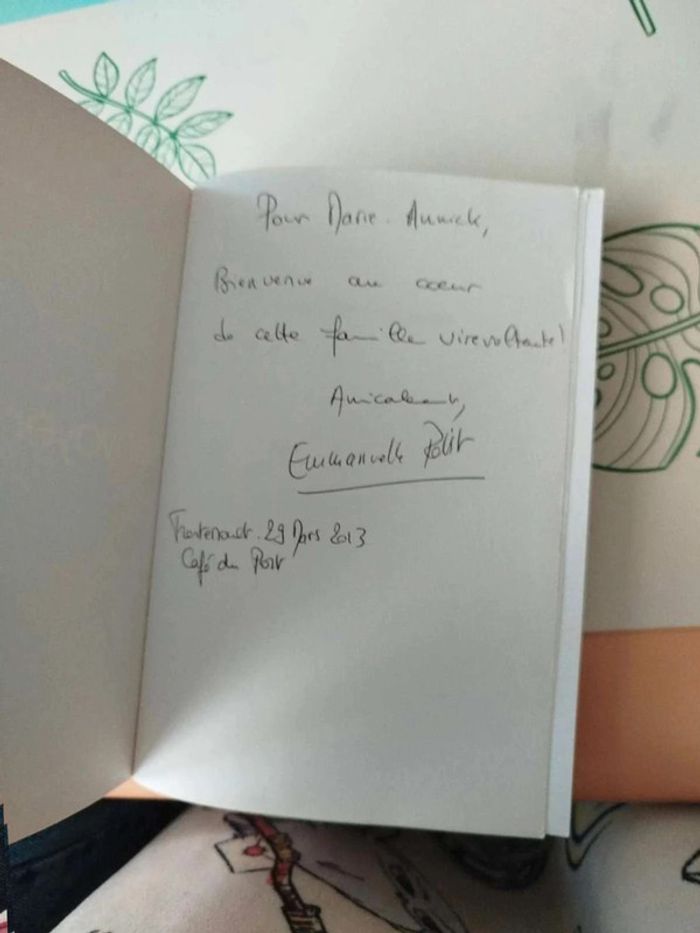 Pour Marie-Annick,
Bienvenue au cœur
de cette famille virevoltante!
Amicalement,
Emmanuelle
29 Mars 2013
Café du Port